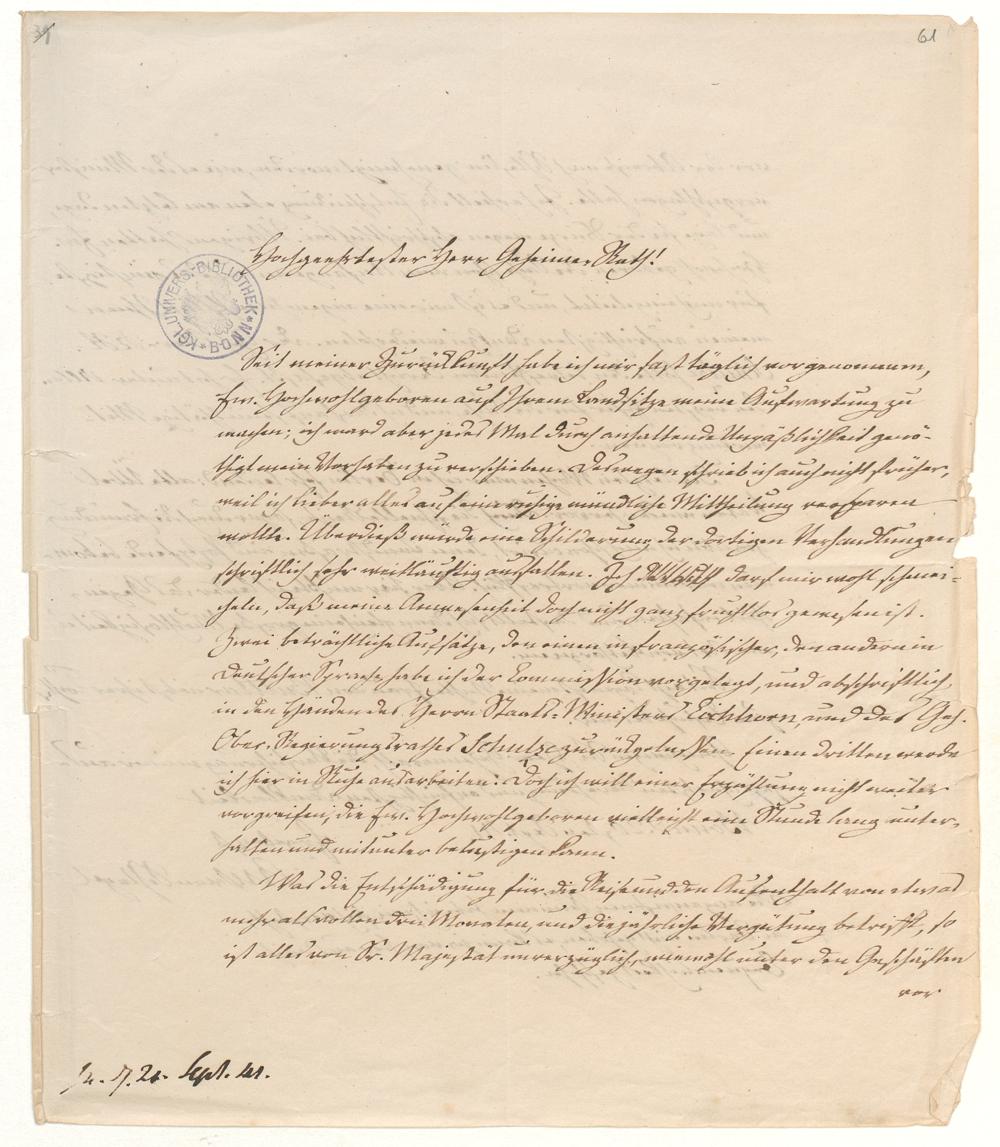 61
Hochgeehrtester Herr Geheimer Rath!
KGL. UNIVERS.-BIBLIOTHEK * BONN *
Seit meiner Zurückkunft habe ich mir fast täglich vorgenommen,
Ew. Hochwohlgeboren auf Ihrem Landsitze meine Aufwartung zu
machen; ich ward aber jedes Mal durch anhaltende Unpäßlichkeit genö-
thigt mein Vorhaben zu verschieben. Deswegen schrieb ich auch nicht früher,
weil ich lieber alles auf eine ruhige mündliche Mittheilung versparen
wollte. Überdieß würde eine Schilderung der dortigen Verhandlungen
schriftlich sehr weitläuftig ausfallen. Ich darf mir wohl schmei-
cheln, daß meine Anwesenheit doch nicht ganz fruchtlos gewesen ist.
Zwei beträchtliche Aufsätze, den einen in französischer, den andern in
deutscher Sprache habe ich der Commission vorgelegt, und abschriftlich
in den Händen des Herrn Staats-Ministers Eichhorn, und des Geh.
Ober-Regierungsrathes Schulze zurückgelassen. Einen dritten werde
ich hier in Ruhe ausarbeiten. Doch ich will einer Erzählung nicht weiter
vorgreifen, die Ew. Hochwohlgeboren vielleicht eine Stunde lang unter-
halten und mitunter belustigen kann.
Was die Entschädigung für die Reise und den Aufenthalt von etwas
mehr als vollen drei Monaten, und die jährliche Vergütung betrifft, so
ist alles von Sr. Majestät unverzüglich, wiewohl unter den Geschäften
vor
21. Sept. 41.